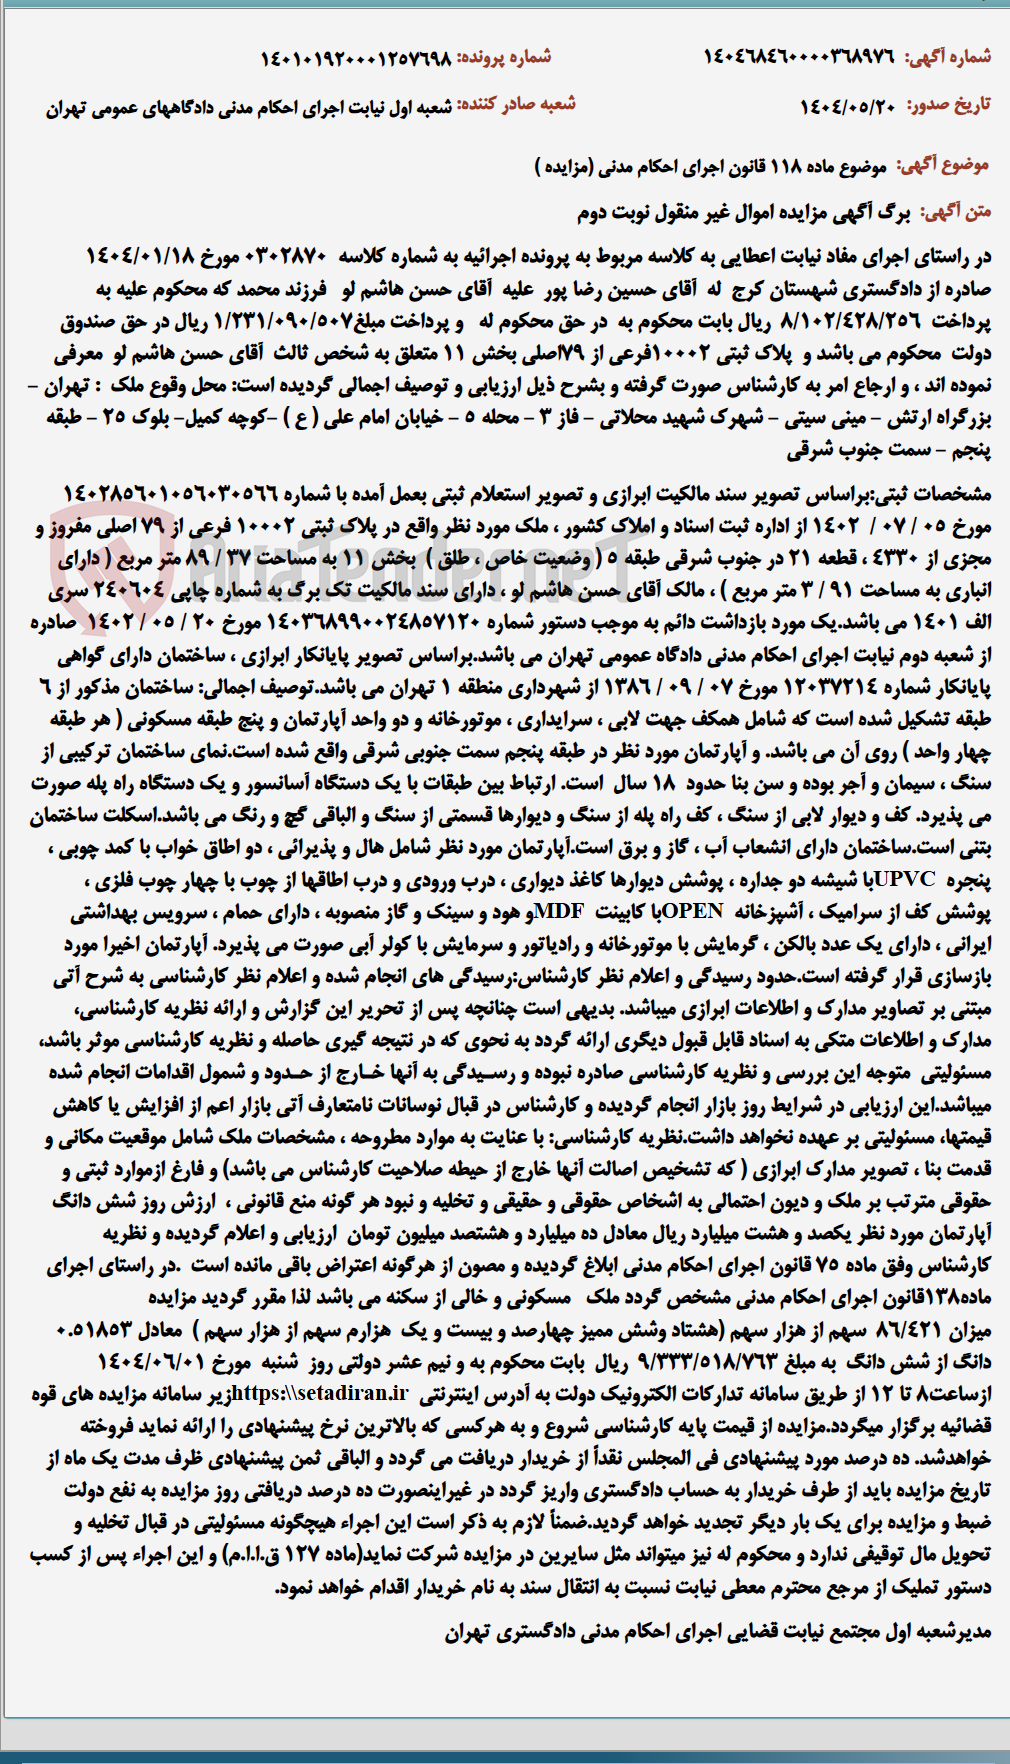 شماره آگهی: ۱۴۰۴۶۸۴۶۰۰۰۰۳۶۸۹۷۶ شماره پرونده: ۱۴۰۱۰۱۹۲۰۰۰۱۲۵۷۶۹۸
تاریخ صدور: ۱۴۰۴/۰۵/۲۰ شعبه صادر کننده: شعبه اول نیابت اجرای احکام مدنی دادگاههای عمومی تهران
موضوع آگهی: موضوع ماده ۱۱۸ قانون اجرای احکام مدنی (مزایده )
متن آگهی: برگ آگهی مزایده اموال غیر منقول نوبت دوم
در راستای اجرای مفاد نیابت اعطایی به کلاسه مربوط به پرونده اجرائیه به شماره کلاسه ۰۳۰۲۸۷۰ مورخ ۱۴۰۴/۰۱/۱۸
صادره از دادگستری شهستان کرج له آقای حسین رضا پور علیه آقای حسن هاشم لو فرزند محمد که محکوم علیه به
پرداخت ۸/۱۰۲/۴۲۸/۲۵۶ ریال بابت محکوم به در حق محکوم له و پرداخت مبلغ۱/۲۳۱/۰۹۰/۵۰۷ ریال در حق صندوق
دولت محکوم می باشد و پلاک ثبتی ۱۰۰۰۲فرعی از ۷۹اصلی بخش ۱۱ متعلق به شخص ثالث آقای حسن هاشم لو معرفی
نموده اند ، و ارجاع امر به کارشناس صورت گرفته و بشرح ذیل ارزیابی و توصیف اجمالی گردیده است: محل وقوع ملک : تهران –
بزرگراه ارتش – مینی سیتی – شهرک شهید محلاتی – فاز ۳ – محله ۵ – خیابان امام علی ( ع ) –کوچه کمیل– بلوک ۲۵ – طبقه
پنجم – سمت جنوب شرقی
مشخصات ثبتی:براساس تصویر سند مالکیت ابرازی و تصویر استعلام ثبتی بعمل آمده با شماره ۱۴۰۲۸۵۶۰۱۰۵۶۰۳۰۵۶۶
مورخ ۰۵ / ۰۷ / ۱۴۰۲ از اداره ثبت اسناد و املاک کشور ، ملک مورد نظر واقع در پلاک ثبتی ۱۰۰۰۲ فرعی از ۷۹ اصلی مفروز و
مجزی از ۴۳۳۰ ، قطعه ۲۱ در جنوب شرقی طبقه ۵ ( وضعیت خاص ، طلق ) بخش ۱۱ به مساحت ۳۷ / ۸۹ متر مربع ( دارای
انباری به مساحت ۹۱ / ۳ متر مربع ) ، مالک آقای حسن هاشم لو ، دارای سند مالکیت تک برگ به شماره چاپی ۲۴۰۶۰۴ سری
الف ۱۴۰۱ می باشد.یک مورد بازداشت دائم به موجب دستور شماره ۱۴۰۳۶۸۹۹۰۰۲۴۸۵۷۱۲۰ مورخ ۲۰ / ۰۵ / ۱۴۰۲ صادره
از شعبه دوم نیابت اجرای احکام مدنی دادگاه عمومی تهران می باشد.براساس تصویر پایانکار ابرازی ، ساختمان دارای گواهی
پایانکار شماره ۱۲۰۳۷۲۱۴ مورخ ۰۷ / ۰۹ / ۱۳۸۶ از شهرداری منطقه ۱ تهران می باشد.توصیف اجمالی: ساختمان مذکور از ۶
طبقه تشکیل شده است که شامل همکف جهت لابی ، سرایداری ، موتورخانه و دو واحد آپارتمان و پنج طبقه مسکونی ( هر طبقه
چهار واحد ) روی آن می باشد. و آپارتمان مورد نظر در طبقه پنجم سمت جنوبی شرقی واقع شده است.نمای ساختمان ترکیبی از
سنگ ، سیمان و آجر بوده و سن بنا حدود ۱۸ سال است. ارتباط بین طبقات با یک دستگاه آسانسور و یک دستگاه راه پله صورت
می پذیرد. کف و دیوار لابی از سنگ ، کف راه پله از سنگ و دیوارها قسمتی از سنگ و الباقی گچ و رنگ می باشد.اسکلت ساختمان
بتنی است.ساختمان دارای انشعاب آب ، گاز و برق است.آپارتمان مورد نظر شامل هال و پذیرائی ، دو اطاق خواب با کمد چوبی ،
پنجره UPVCبا شیشه دو جداره ، پوشش دیوارها کاغذ دیواری ، درب ورودی و درب اطاقها از چوب با چهار چوب فلزی ،
پوشش کف از سرامیک ، آشپزخانه OPENبا کابینت MDFو هود و سینک و گاز منصوبه ، دارای حمام ، سرویس بهداشتی
ایرانی ، دارای یک عدد بالکن ، گرمایش با موتورخانه و رادیاتور و سرمایش با کولر آبی صورت می پذیرد. آپارتمان اخیرا مورد
بازسازی قرار گرفته است.حدود رسیدگی و اعلام نظر کارشناس:رسیدگی های انجام شده و اعلام نظر کارشناسی به شرح آتی
مبتنی بر تصاویر مدارک و اطلاعات ابرازی میباشد. بدیهی است چنانچه پس از تحریر این گزارش و ارائه نظریه کارشناسی،
مدارک و اطلاعات متکی به اسناد قابل قبول دیگری ارائه گردد به نحوی که در نتیجه گیری حاصله و نظریه کارشناسی موثر باشد،
مسئولیتی متوجه این بررسی و نظریه کارشناسی صادره نبوده و رسـیدگی به آنها خـارج از حـدود و شمول اقدامات انجام شده
میباشد.این ارزیابی در شرایط روز بازار انجام گردیده و کارشناس در قبال نوسانات نامتعارف آتی بازار اعم از افزایش یا کاهش
قیمتها، مسئولیتی بر عهده نخواهد داشت.نظریه کارشناسی: با عنایت به موارد مطروحه ، مشخصات ملک شامل موقعیت مکانی و
قدمت بنا ، تصویر مدارک ابرازی ( که تشخیص اصالت آنها خارج از حیطه صلاحیت کارشناس می باشد) و فارغ ازموارد ثبتی و
حقوقی مترتب بر ملک و دیون احتمالی به اشخاص حقوقی و حقیقی و تخلیه و نبود هر گونه منع قانونی ، ارزش روز شش دانگ
آپارتمان مورد نظر یکصد و هشت میلیارد ریال معادل ده میلیارد و هشتصد میلیون تومان ارزیابی و اعلام گردیده و نظریه
کارشناس وفق ماده ۷۵ قانون اجرای احکام مدنی ابلاغ گردیده و مصون از هرگونه اعتراض باقی مانده است .در راستای اجرای
ماده۱۳۸قانون اجرای احکام مدنی مشخص گردد ملک مسکونی و خالی از سکنه می باشد لذا مقرر گردید مزایده
میزان ۸۶/۴۲۱ سهم از هزار سهم (هشتاد وشش ممیز چهارصد و بیست و یک هزارم سهم از هزار سهم ) معادل ۰.۵۱۸۵۳
دانگ از شش دانگ به مبلغ ۹/۳۳۳/۵۱۸/۷۶۳ ریال بابت محکوم به و نیم عشر دولتی روز شنبه مورخ ۱۴۰۴/۰۶/۰۱
ازساعت۸ تا ۱۲ از طریق سامانه تدارکات الکترونیک دولت به آدرس اینترنتی https:\\setadiran.irزیر سامانه مزایده های قوه
قضائیه برگزار میگردد.مزایده از قیمت پایه کارشناسی شروع و به هرکسی که بالاترین نرخ پیشنهادی را ارائه نماید فروخته
خواهدشد. ده درصد مورد پیشنهادی فی المجلس نقداً از خریدار دریافت می گردد و الباقی ثمن پیشنهادی ظرف مدت یک ماه از
تاریخ مزایده باید از طرف خریدار به حساب دادگستری واریز گردد در غیراینصورت ده درصد دریافتی روز مزایده به نفع دولت
ضبط و مزایده برای یک بار دیگر تجدید خواهد گردید.ضمناً لازم به ذکر است این اجراء هیچگونه مسئولیتی در قبال تخلیه و
تحویل مال توقیفی ندارد و محکوم له نیز میتواند مثل سایرین در مزایده شرکت نماید(ماده ۱۲۷ ق.ا.ا.م) و این اجراء پس از کسب
دستور تملیک از مرجع محترم معطی نیابت نسبت به انتقال سند به نام خریدار اقدام خواهد نمود.
مدیرشعبه اول مجتمع نیابت قضایی اجرای احکام مدنی دادگستری تهران
AriaTender.neT